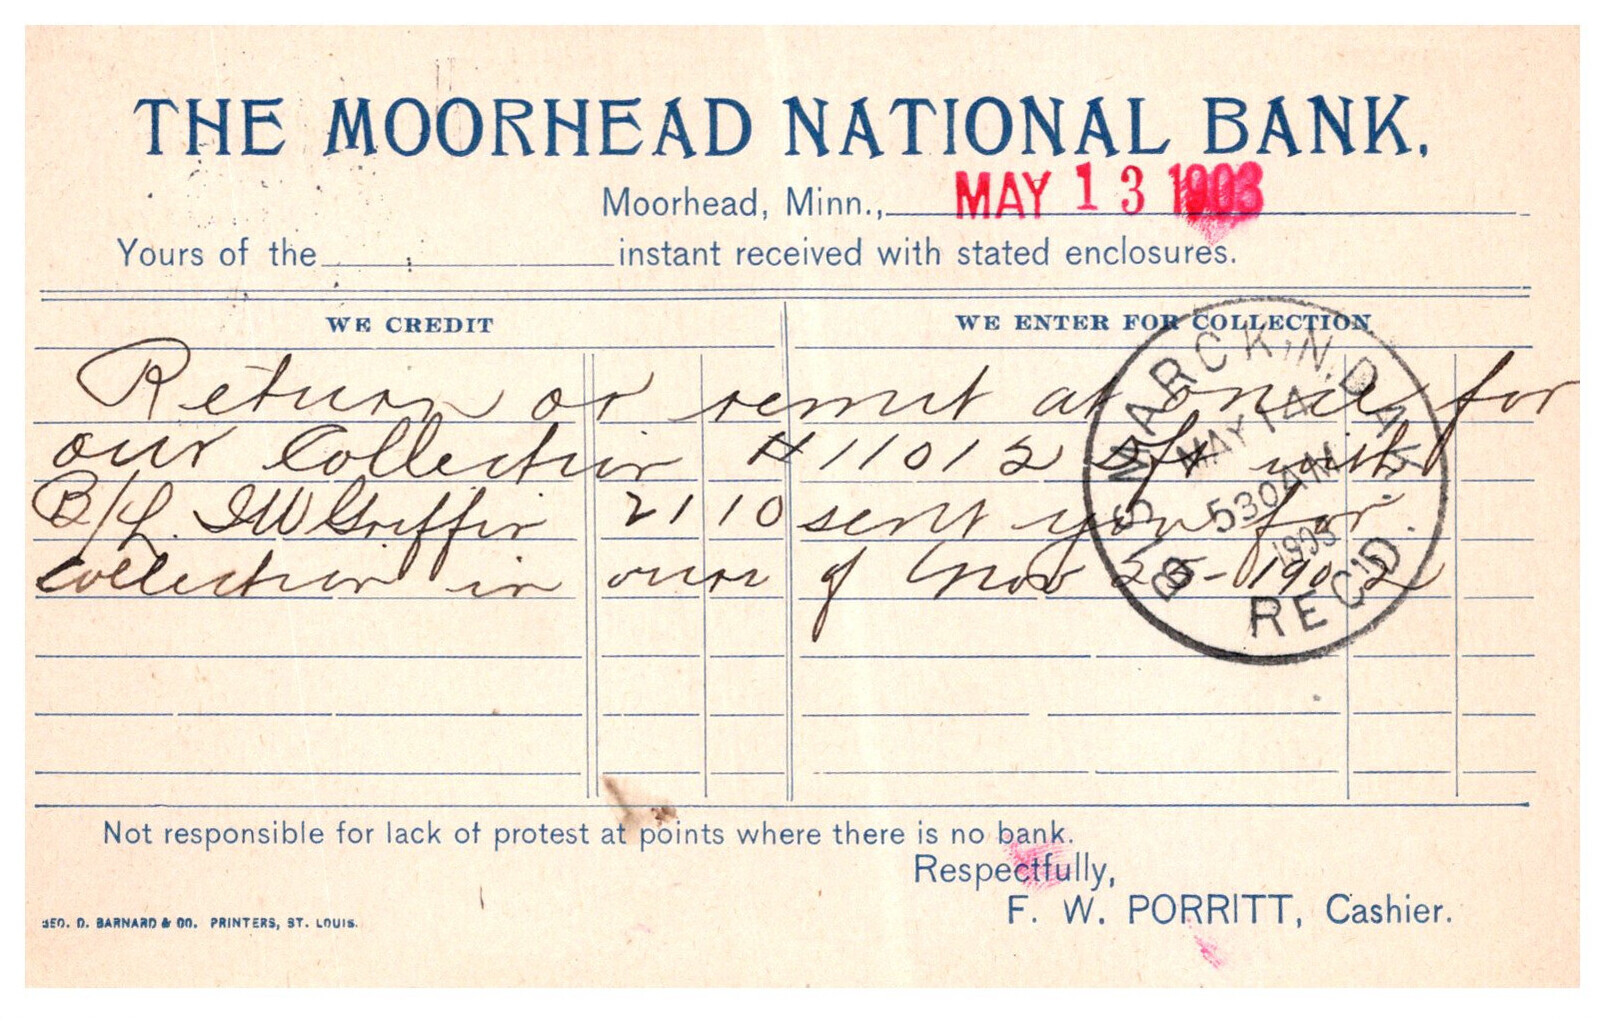 THE MOORHEAD NATIONAL BANK,
Moorhead, Minn., MAY 13 1903
Yours of the instant received with stated enclosures.
WE CREDIT WE ENTER FOR COLLECTION
Return or remit at once for
our Collection # 11012 Dft with
B/L. J W Griffin 21 10 sent you for
collection in ours of Nov 25 - 1902
BISMARCK, N. DAK.
MAY 14
5 30 AM
1903
REC'D.
Not responsible for lack of protest at points where there is no bank.
Respectfully,
F. W. PORRITT, Cashier.
GEO. D. BARNARD & CO. PRINTERS, ST. LOUIS.